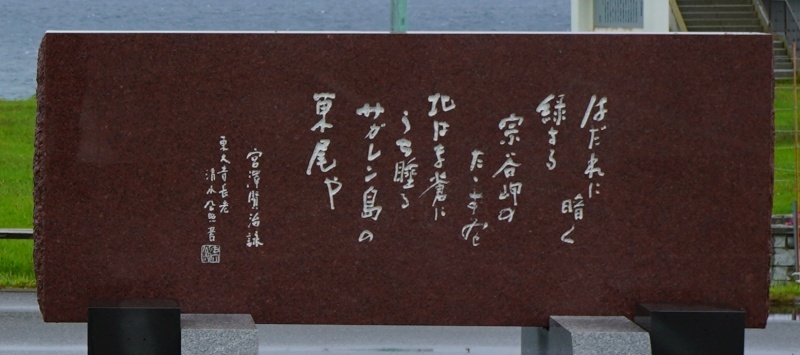 はだれに
暗く
緑する
宗谷岬の
たゝずみと
北はま蒼に
うち睡る
サガレン島の
東尾や
宮澤賢治詠
東大寺長老
清水公照書